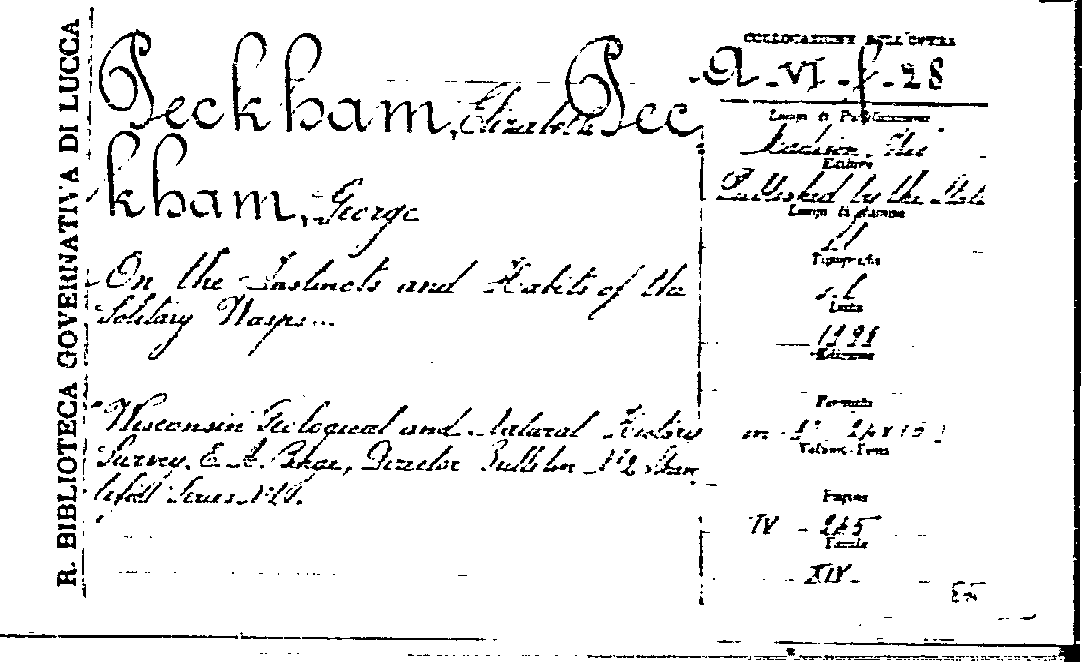 R. BIBLIOTECA GOVERNATIVA DI LUCCA
Peckham, Elizabeth Pec
kham, George
On the Instincts and Habits of the
Solitary Wasps...
Wisconsin Geological and Natural History
Survey. E. A. Director Bulletin N. 2
Series N.
COLLOCAZIONE DELL'OPERA
A - VI - f - 28
Luogo di Pubblicazione
Madison, Wis
Editore
Published by the State
Luogo di stampa
Tipografia
s. t.
Data
1898
Edizione
Formato
in - 8°
Volume-Tomo
Pagine
IV - 245
Tavole
XIV